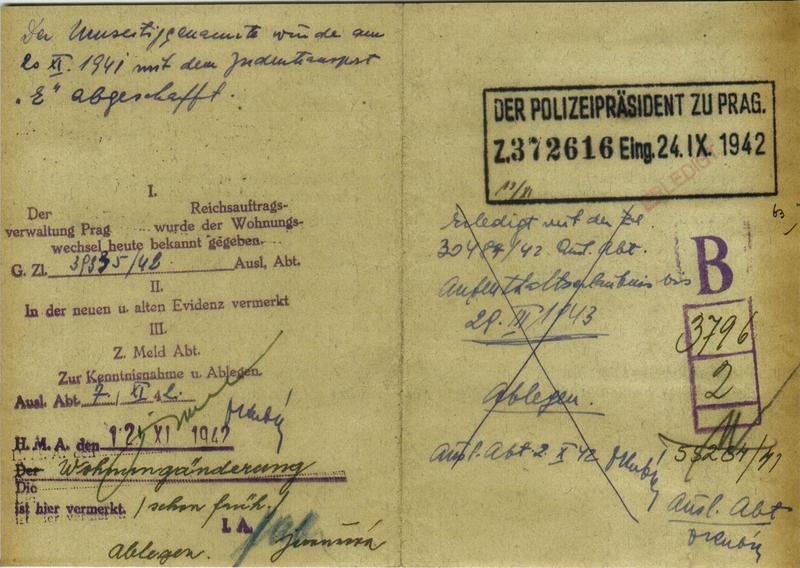 Der Umseitiggenannte wurde am
20 XI. 1941 mit dem Judentransport
"E" abgeschafft.
I.
Der Reichsauftrags-
verwaltung Prag wurde der Wohnungs-
wechsel heute bekannt gegeben.
G. Zl. 39335/42 Ausl, Abt.
II.
In der neuen u. alten Evidenz vermerkt
III.
Z. Meld Abt.
Zur Kenntnisnahme u. Ablegen.
Ausl. Abt. 7. XI 42.
H. M. A. den 12 XI 1942
Der Wohnungänderung
Die
ist hier vermerkt. /schon früh./
I. A.
ablegen.
DER POLIZEIPRÄSIDENT ZU PRAG.
Z. 372616 Eing. 24. IX. 1942
ERLEDIGT
63
Erledigt mit der Zl
30484/42 Ausl. Abt.
Aufenthaltserlaubnis bis
29. III 1943
Ablegen.
Ausl. Abt. 2. X 42
B
3796
2
55284/41
Ausl. Abt